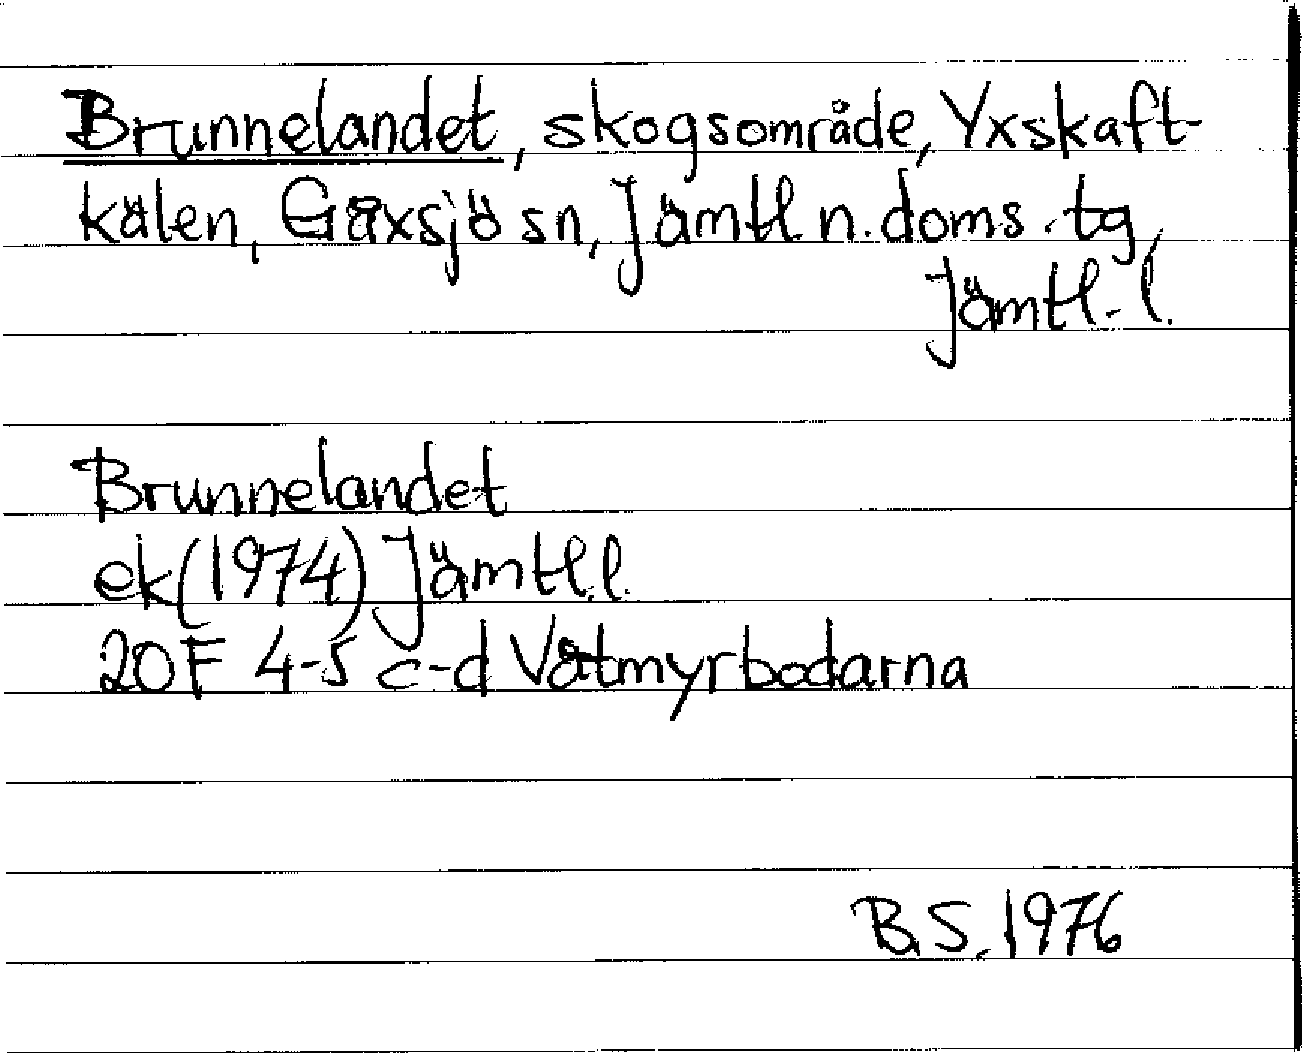 Brunnelandet, skogsområde, Yxskaft-
kälen, Gåxsjö sn, Jämtl. n. doms. tg,
Jämtl. l.
Brunnelandet
ek (1974) Jämtl. l.
20F 4-5 c-d Våtmyrbodarna
B.S. 1976